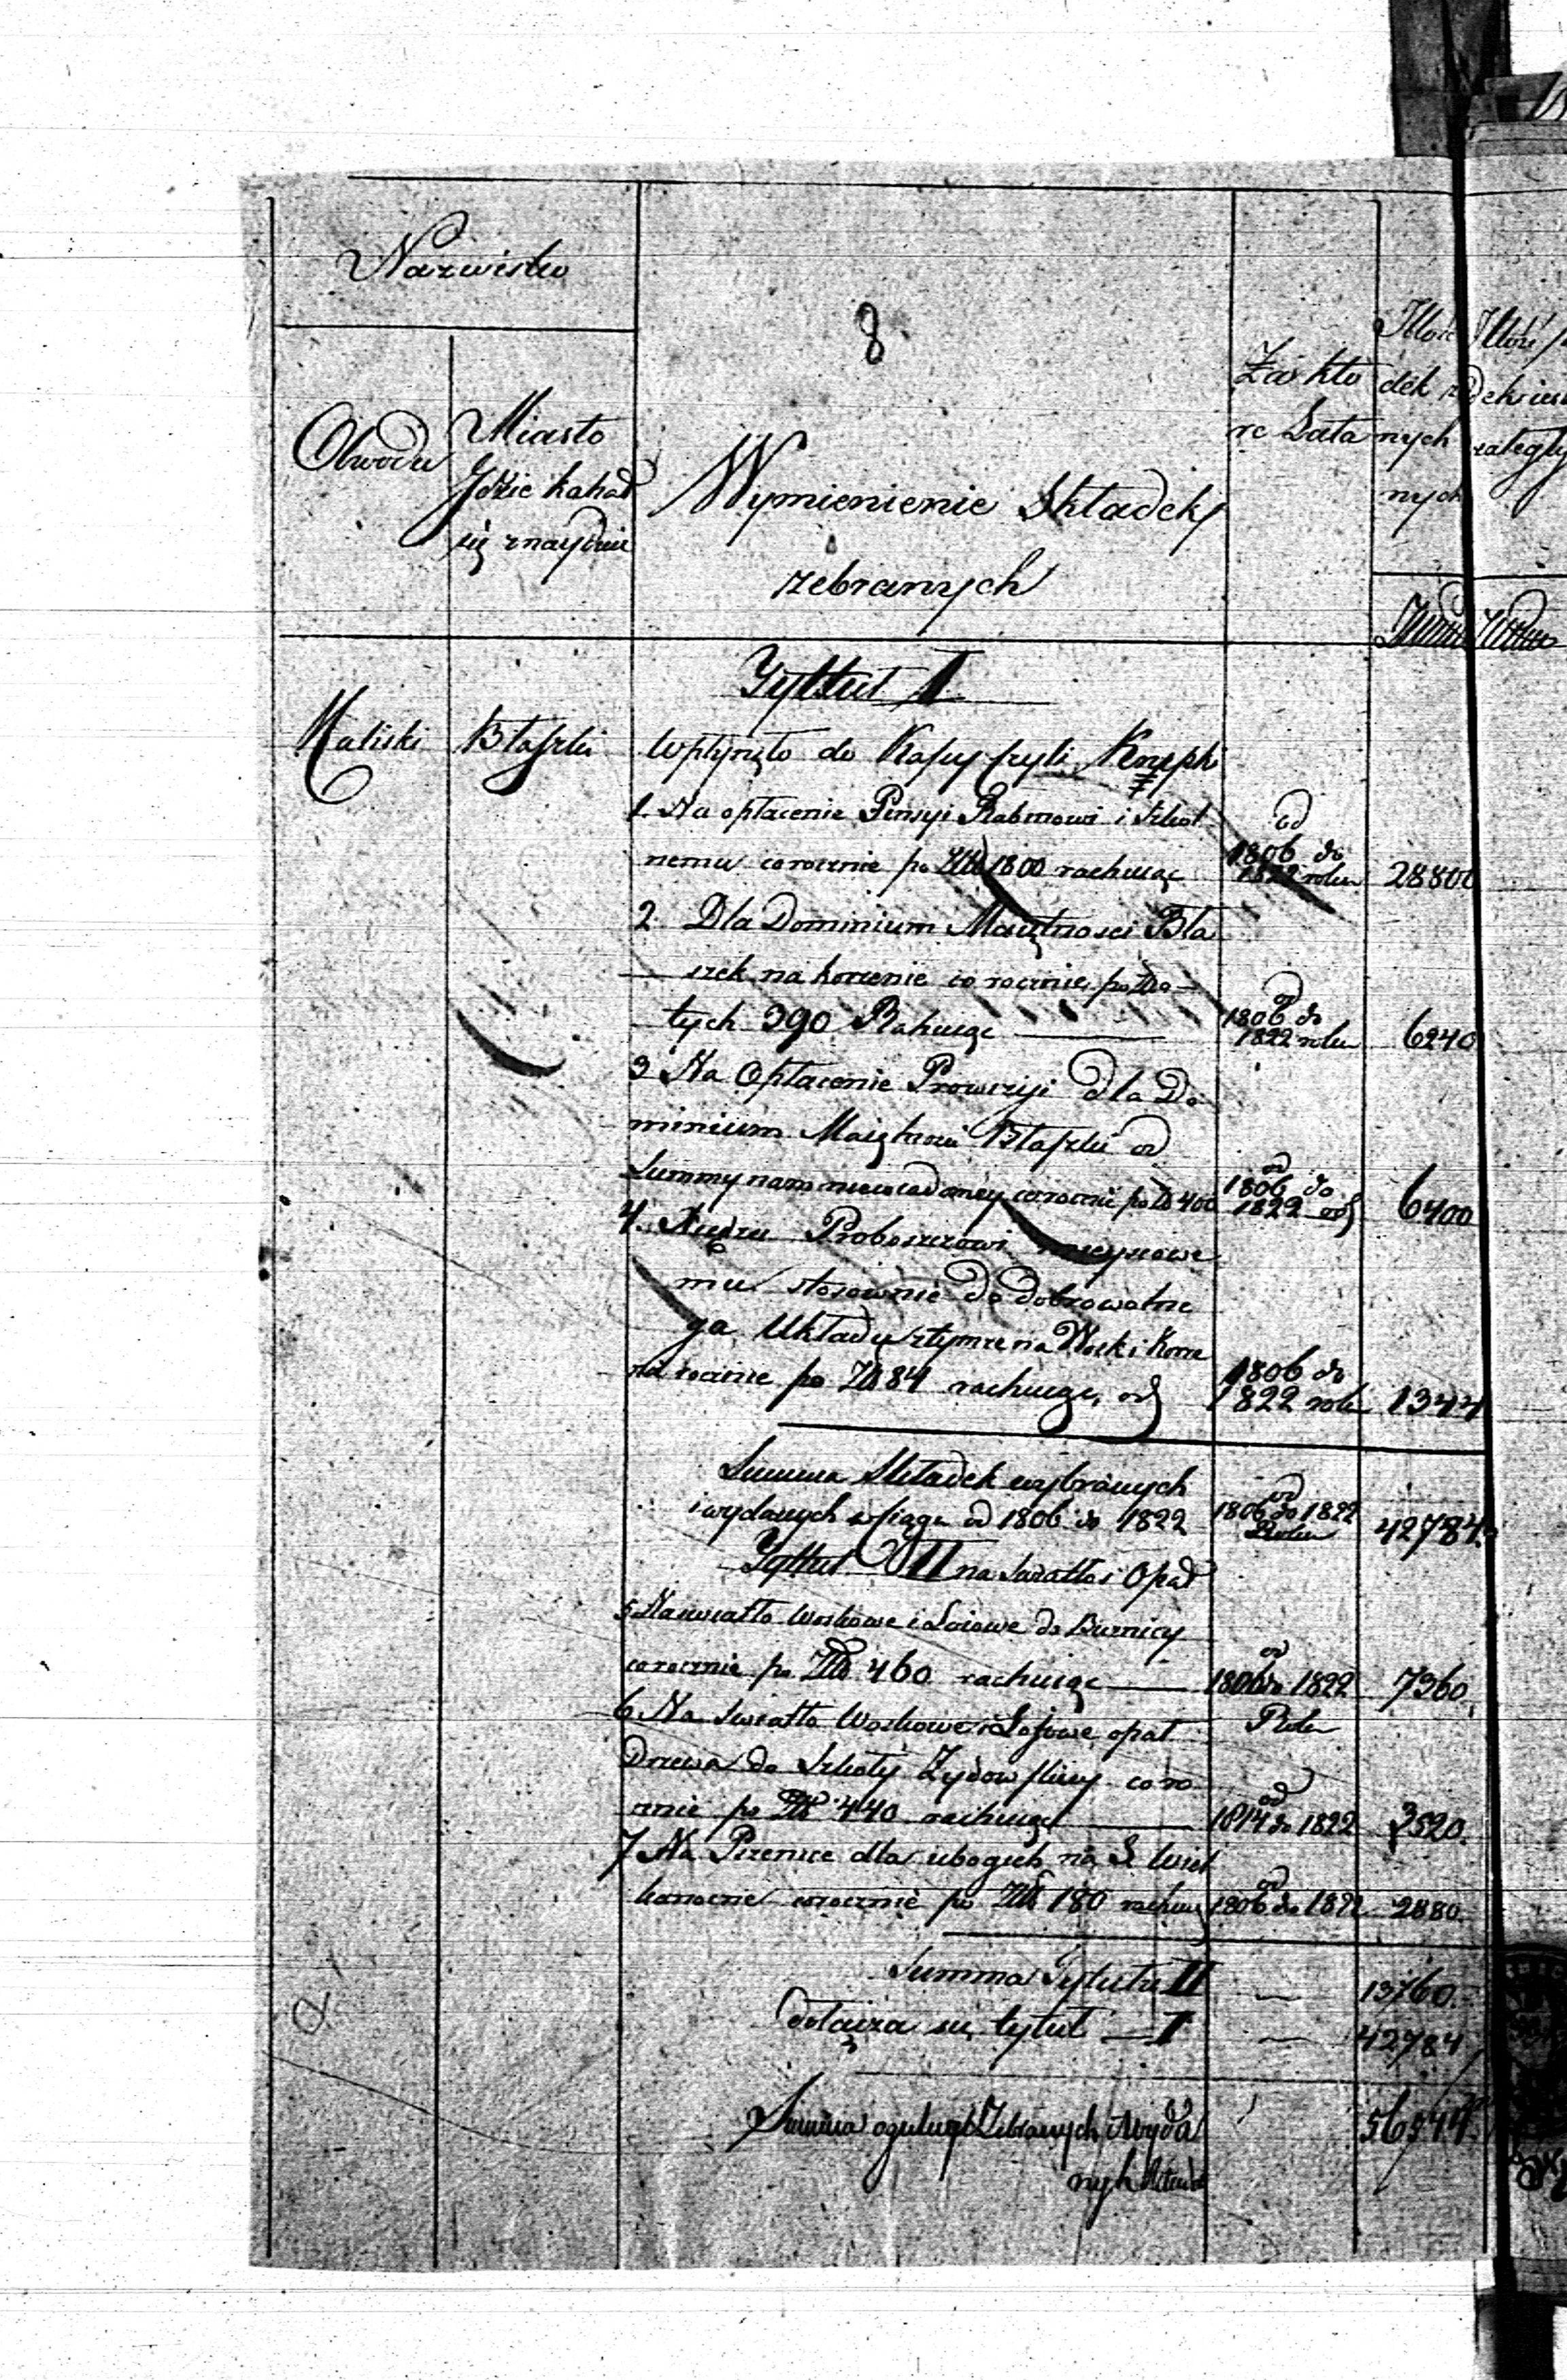 Nazwisko
8
Obwodu
Miasto
Gdzie kahał
się znayduie
Wymienienie Składek
zebranych
Za któ
re Lata
Ilość
dek
nych
nych
Tyttuł I
Kaliski
Błaszki
Wpłynęło do Kassy czyli Krupki
1. Na opłacenie Pensyi Rabinowi i Szkol
nemu corocznie po Złł 1800 rachuiąc
od
1806 do
1822 roku
28800
2. Dla Dominium Maiętnosci Bła
szek na korzenie corocznie po Zło
tych 390 Rahuiąc
od
1806 do
1822 roku
6240
3 Na Opłacenie Prowizyi dla Do
minium Maiętnosci Błaszki od
Summy nam niewiadomey corocznie po Zł 400
od
1806 do
1822 od
6400
4. Xiędzu Proboszczowi mieyscowe
mu stosownie do dobrowolne
go Układu z tymże na Wosk i Korze
nie rocznie po Złł 84 rachuiąc, od
1806 do
1822 roku
1344
Summa Składek wybranych
i wydanych w ciągu od 1806 do 1822
od
1806 do 1822
Roku
42784.
Tyttuł II na Swiatło i Opał
5 Na swiatło Woskowe i Łoiowe do Buznicy
corocznie po Złł 460 rachuiąc
od
1806 do 1822
Roku
7360
6 Na Swiatło Woskowe i Łojowe opał
Drzewa do Szkoły Zydowskiey coro
cznie po Złł 440 rachuiąc
od
1814 do 1822
3520.
7 Na Pszenice dla ubogich na S. Wiel
kanocne corocznie po Złł 180 rachuiąc
od
1806 do 1822
2880.
Summa Tytułu II
13760.
dołącza się tytuł I
42784
Summa ogulnych Zebranych i wyda
nych Składek
56544.